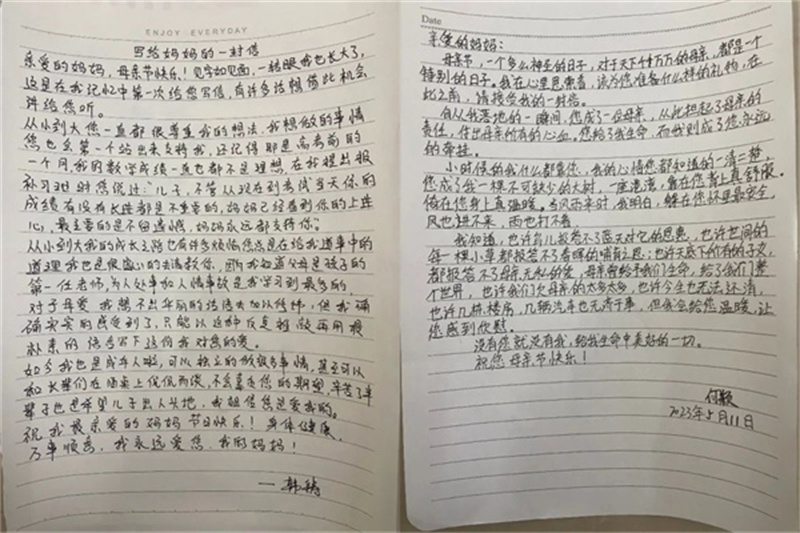 ENJOY EVERYDAY
写给妈妈的一封信
亲爱的妈妈,母亲节快乐!见字如见面,一转眼我也长大了,
这是在我记忆中第一次给您写信,有许多话想借此机会
讲给您听。
从小到大您一直都很尊重我的想法,我想做的事情
您也会第一个站出来支持我,还记得那是高考前的
一个月,我的数学成绩一直也都不是理想,在我提出报
补习班时您说过:"儿子,不管从现在到考试当天你的
成绩有没有长进都是不重要的,妈妈已经看到你的上进
心,最主要的是不留遗憾,妈妈永远都支持你。"
从小到大我的成长之路也有许多烦恼您总是在给我道事中的
道理我也是很虚心的去请教你,因为我知道父母是孩子的
第一任老师,为人处事和人情事故是我学习到最多的,
对于母爱,我想不出华丽的话语去加以修饰,但我确
确实实的感受到了,只能以这种反复 再用最
朴素的语言写下这份我对您的爱。
如今我也是成年人啦,可以独立的做很多事情,甚至可以
和长辈们在酒桌上侃侃而谈,不会辜负您的期望,辛苦了半
辈子也是希望儿子出人头地,我相信您是爱我的。
祝我最亲爱的妈妈节日快乐!身体健康,
万事顺意,我永远爱您,我的妈妈!
— 韩
Date
亲爱的妈妈:
母亲节,一个多么神圣的日子,对于天下千千万万的母亲,都是一个
特别的日子。我在心里思索着,该为您准备什么样的礼物,在
此之前,请接受我的一封信。
自从我落地的一瞬间,您成了一位母亲,从此担起了母亲的
责任,付出母亲所有的心血。您给了我生命,而我则成了您永远
的牵挂。
小时候的我什么都靠您,我的心情您都知道的一清二楚。
您成了我一棵不可缺少的大树,一座港湾,靠在您背上真舒服。
倚在您身上真温暖。当风雨来时,我明白,躲在您怀里最安全,
风也进不来,雨也打不着。
我知道,也许鸟儿报答不了蓝天对它的恩惠,也许世间的
每一棵小草都报答不了春晖的哺育之恩;也许天底下所有的子女,
都报答不了母亲无私的爱,母亲曾给予我们生命,给了我们整
个世界,也许我们欠母亲的太多太多,也许今生也无法还清,
也许几栋楼房,几辆汽车也无济于事,但我会给您温暖,让
您感到欣慰。
没有您就没有我,给我生命中美好的一切。
祝您母亲节快乐!
何颖
2023年5月11日